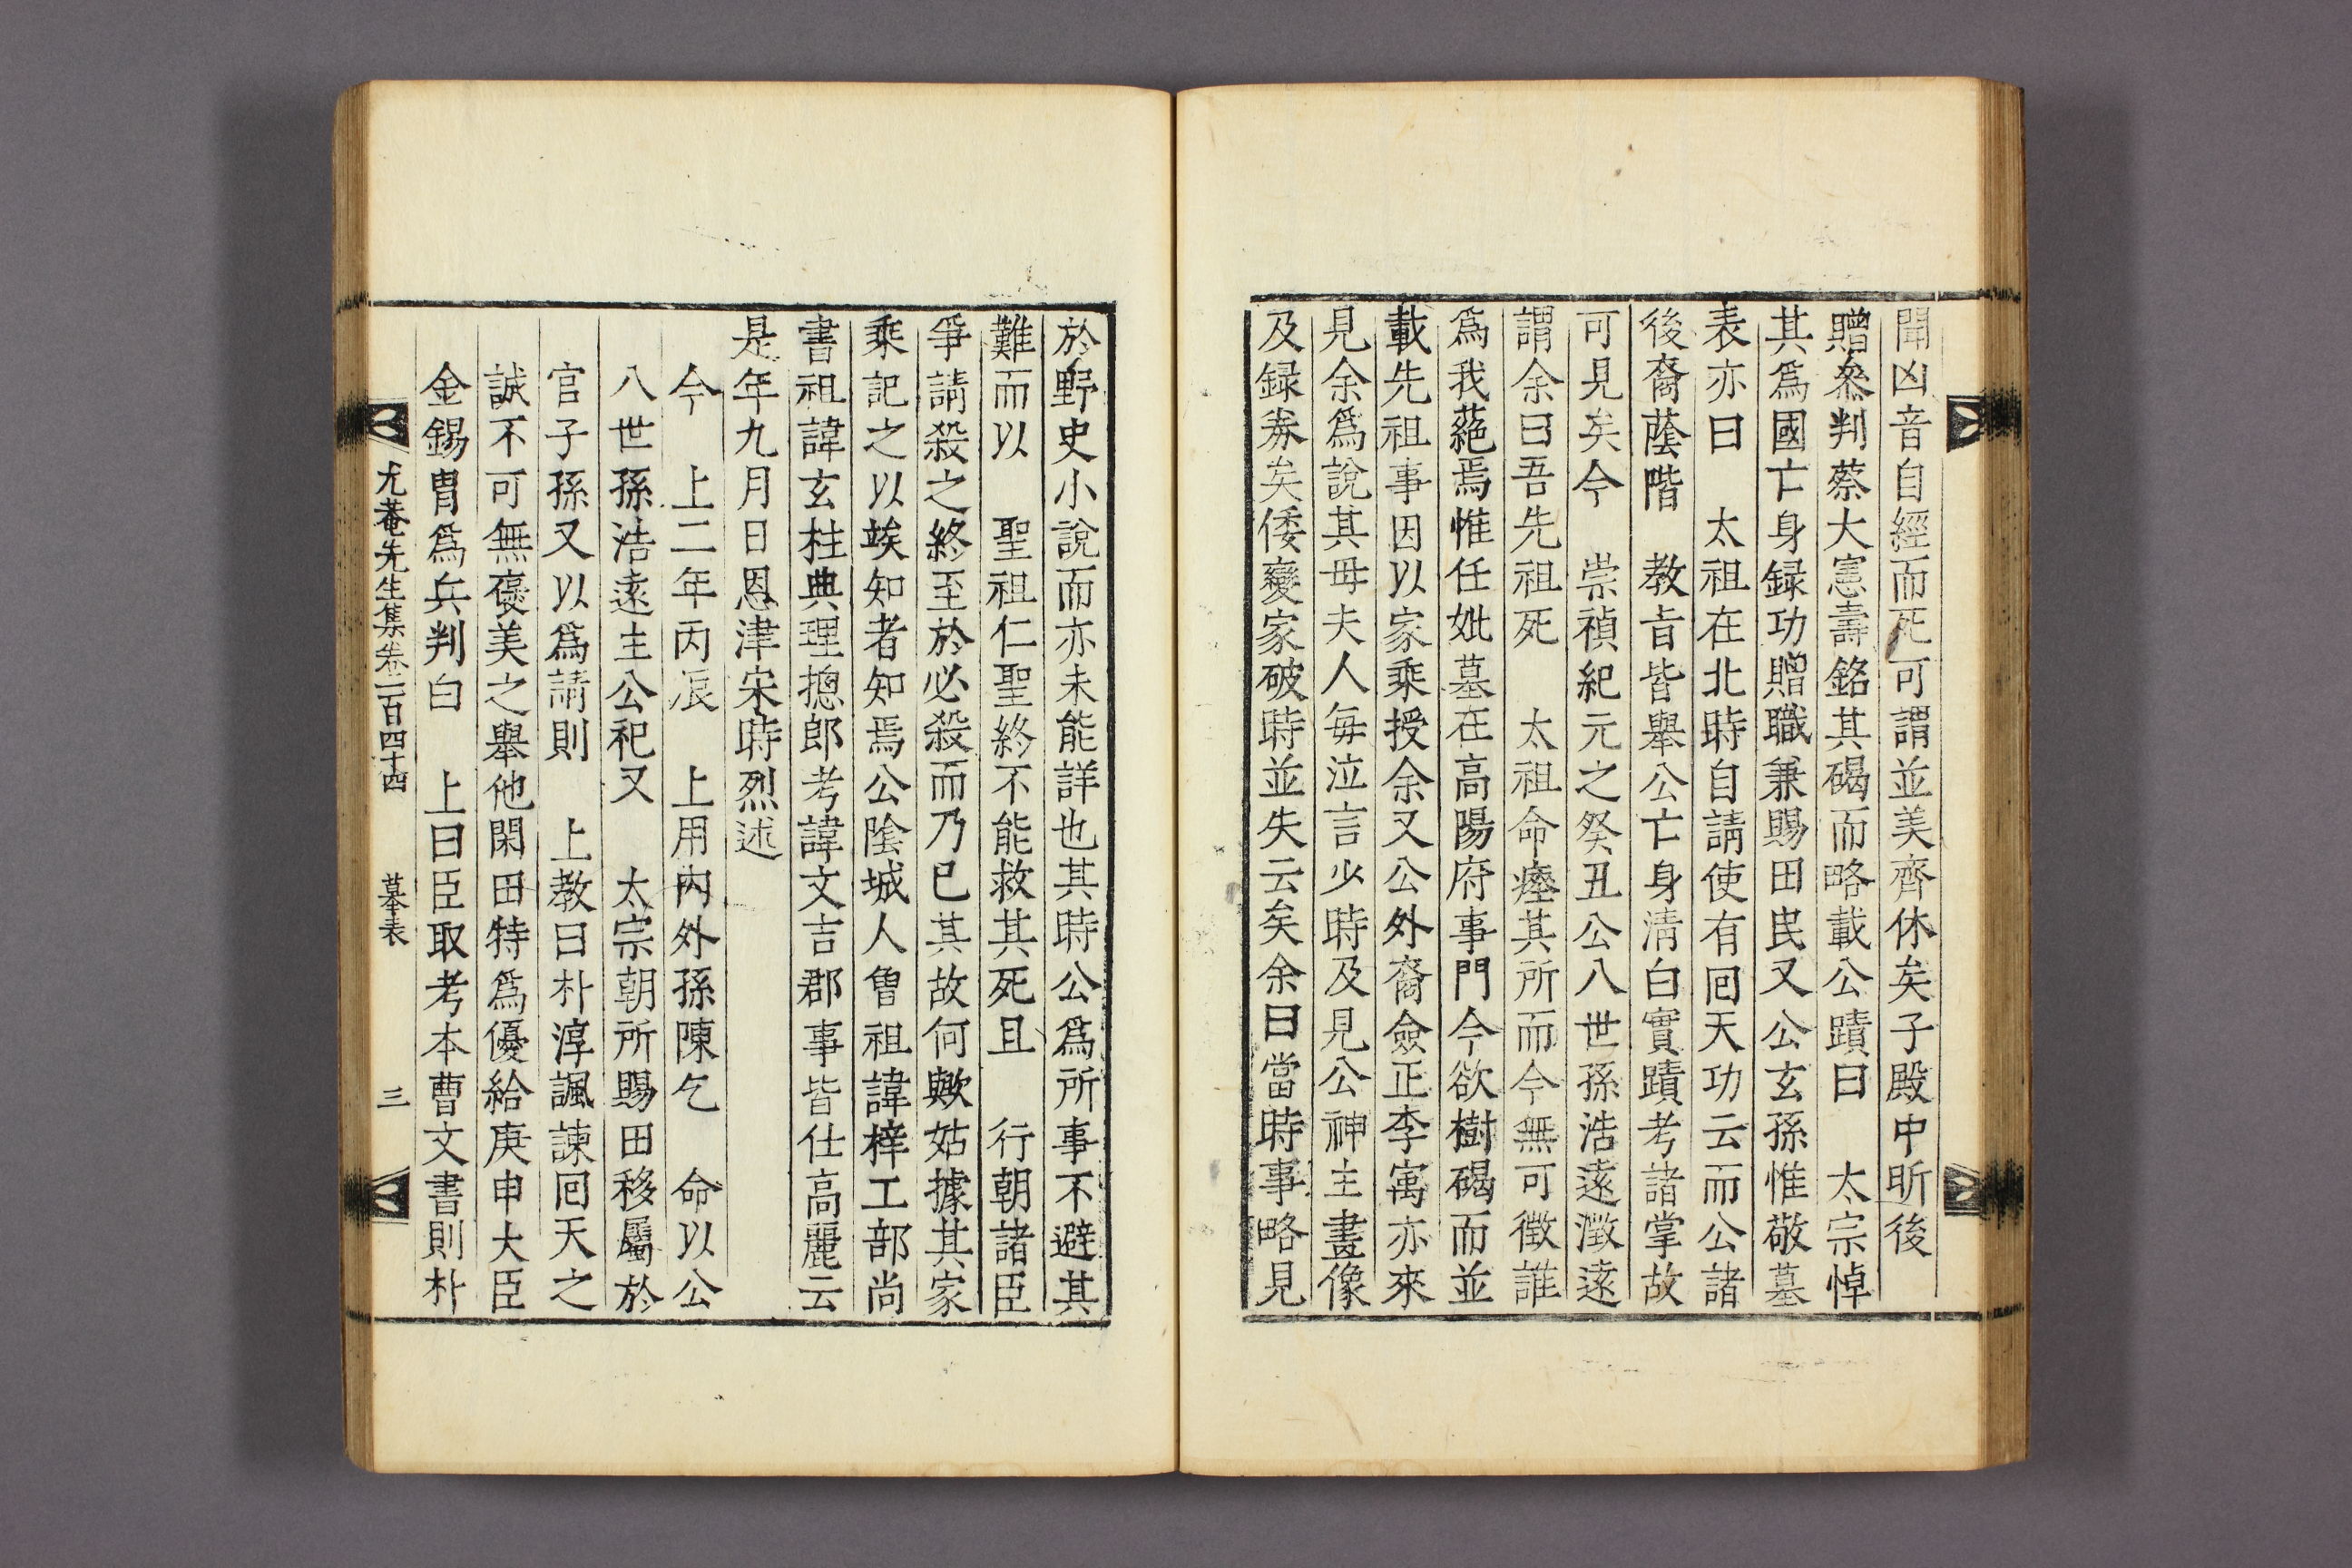 聞凶音自經而死可謂並美齊休矣子殿中昕後
贈叅判蔡大憲壽銘其碣而略載公蹟曰　太宗悼
其爲國亡身録功贈職兼賜田民又公玄孫惟敬墓
表亦曰　太祖在北時自請使有回天功云而公諸
後裔蔭階　教旨皆擧公亡身清白實蹟考諸掌故
可見矣今　崇禎紀元之癸丑公八世孫浩遠澂遠
謂余曰吾先祖死　太祖命瘞其所而今無可徵誰
爲我蕝焉惟任妣墓在高陽府事門今欲樹碣而並
載先祖事因以家乘授余又公外裔僉正李寓亦來
見余爲說其母夫人每泣言少時及見公神主畫像
及録券矣倭變家破時並失云矣余曰當時事略見
於野史小說而亦未能詳也其時公爲所事不避其
難而以　聖祖仁聖終不能救其死且　行朝諸臣
爭請殺之終至於必殺而乃已其故何歟姑據其家
乘記之以竢知者知焉公陰城人曾祖諱梓工部尚
書祖諱玄柱典理摠郎考諱文吉郡事皆仕高麗云
是年九月日恩津宋時烈述
今　上二年丙辰　上用內外孫陳乞　命以公
八世孫浩遠主公祀又　太宗朝所賜田移屬於
官子孫又以爲請則　上教曰朴淳諷諫回天之
誠不可無褒美之擧他閑田特爲優給庚申大臣
金錫胄爲兵判白　上曰臣取考本曹文書則朴
尤菴先生集卷二百四十四　墓表　三